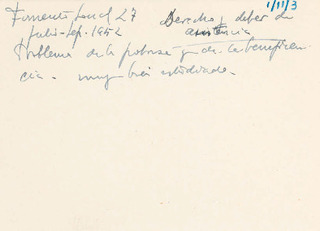 1/11/3
Fomento Social 27 Derecho y deber de
Julio-Sep. 1952 asistencia
Problema de la pobreza y de la beneficen-
cia. muy bien estudiado.